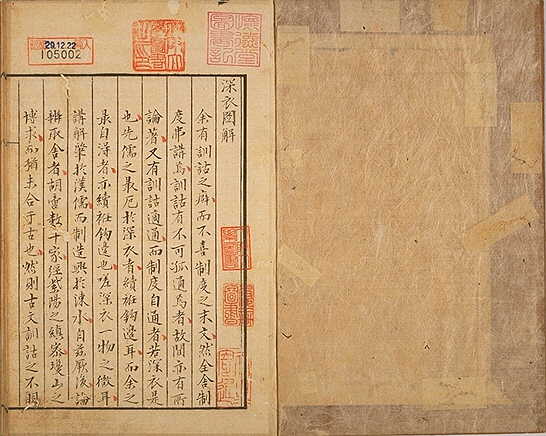 深衣図解
余有訓詁之癖而不喜制度之末文然全舍制
度弗講焉訓詁有不可孤通焉者故間亦有所
論著又有訓詁適通而制度自通者若深衣是
也先儒之最厄於深衣者續衽鉤邊耳而余之
最自得者亦續衽鉤邊也嗟深衣一物之微耳
講解肇於漢儒而制造興於涑水自茲厥後論
辨不舍者胡啻數十家經
之
山之
博求而猶未合于古也然則古文訓詁之不明
29.12.22
105002
圖書